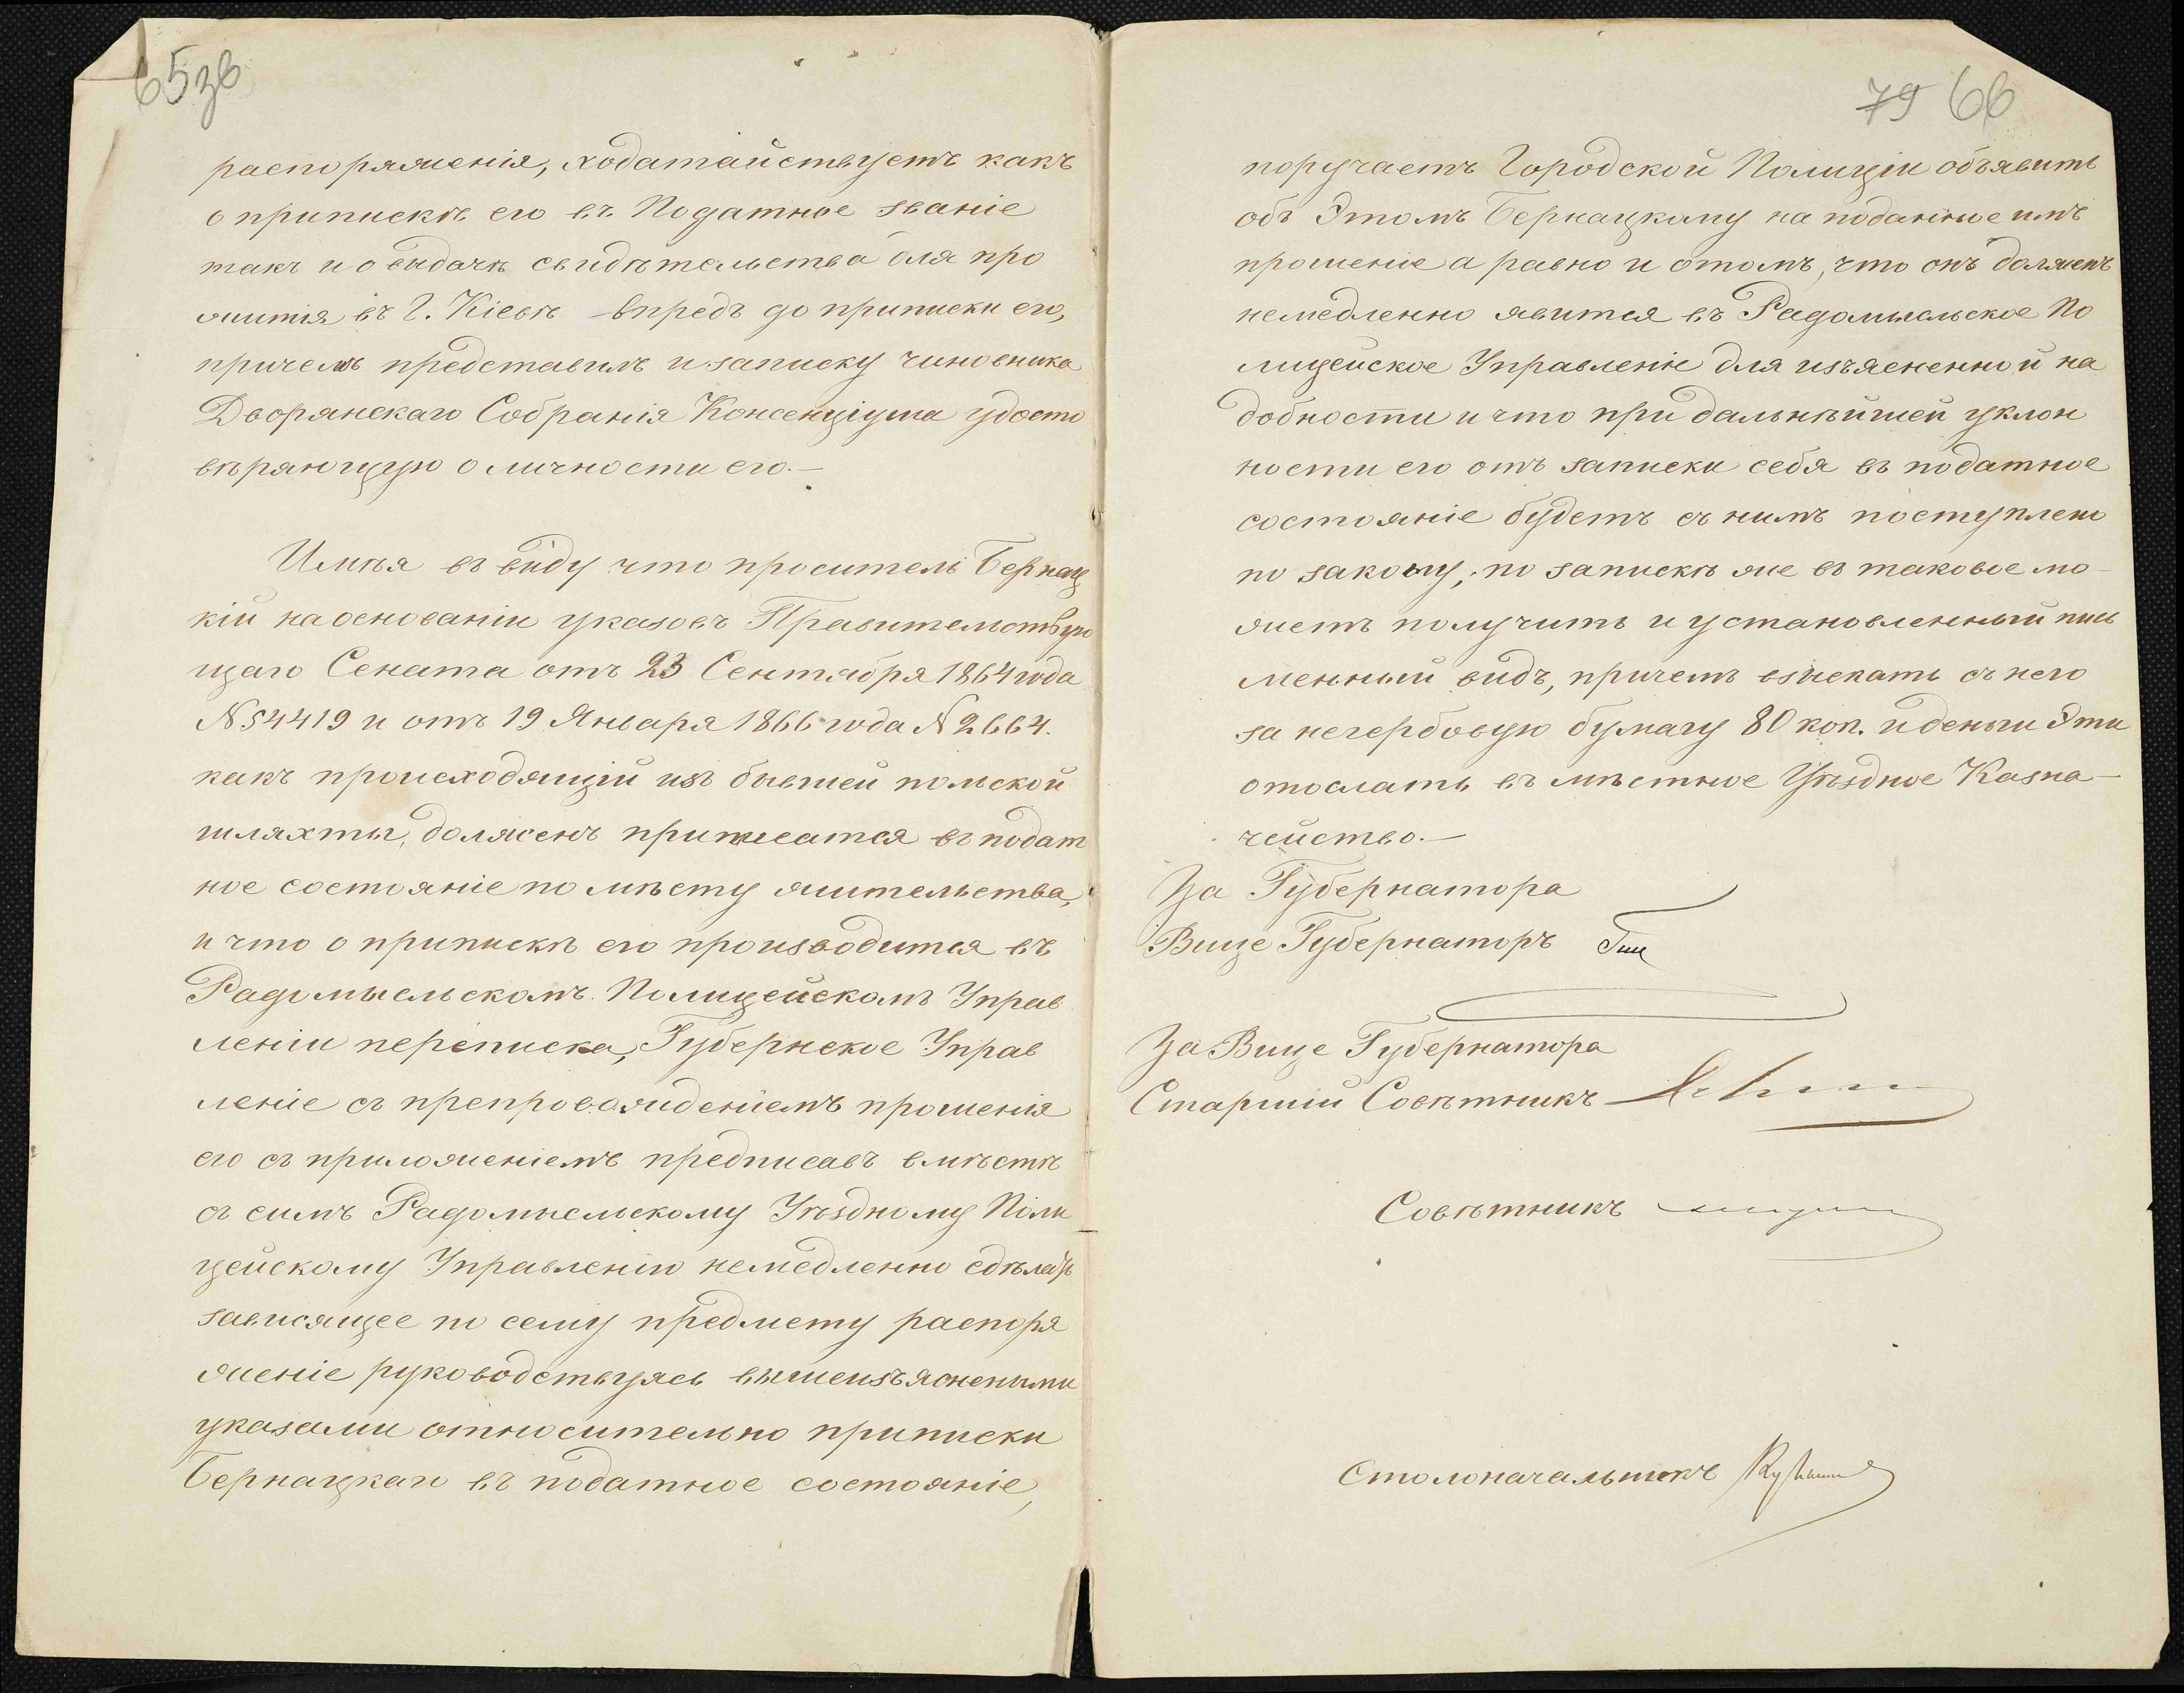 65зв
распоряженія, ходатайствуетъ какъ
о припискѣ его въ Податное званіе
такъ и о выдачѣ свидѣтельства для про
житія въ Г. Кіевѣ впредъ до приписки его,
причемъ представилъ и записку чиновника
Дворянскаго Собранія Консенціуша удосто
вѣряющую о личности его.—
Имѣя въ виду что проситель Бернац
кій на основаніи указовъ Правительствую
щаго Сената отъ 23 Сентября 1864 года
№ 54419 и отъ 19 Января 1866 года № 2664.
какъ происходящій изъ бывшей польской
шляхты, долженъ приписатся въ подат
ное состояніе по мѣсту жительства,
и что о припискѣ его производится въ
Радомысльскомъ Полицейскомъ Управ
леніи переписка, Губернское Управ
леніе съ препровожденіемъ прошенія
его съ приложеніемъ предписавъ вмѣстѣ
съ симъ Радомысльскому Уѣздному Поли
цейскому Управленію немедленно сдѣлать
зависящее по сему предмету распоря
женіе руководствуясь вышеизъяснеными
указами относительно приписки
Бернацкаго въ податное состояніе,
79 66
поручаетъ Городской Полиціи объявить
объ Этомъ Бернацкому на поданное имъ
прошеніе а равно и отомъ, что онъ долженъ
немедленно явится въ Радомысльское По
лицейское Управленіе для изъясненной на
добности и что при дальнѣйшей уклон
ности его отъ записки себя въ податное
состояніе будетъ съ нимъ поступлено
по закону, по запискѣ же въ таковое мо-
жетъ получить и установленный пись
менный видъ, причемъ взыскать съ него
за негербовую бумагу 80 коп. и деньги Эти
отослать въ мѣстное Уѣздное Казна-
чейство.—
За Губернатора
Вице Губернаторъ
За Вице Губернатора
Старшій Совѣтникъ
Совѣтникъ
Столоначальникъ